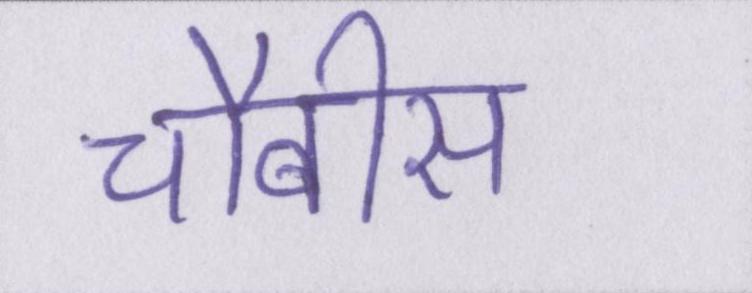 चौबीस